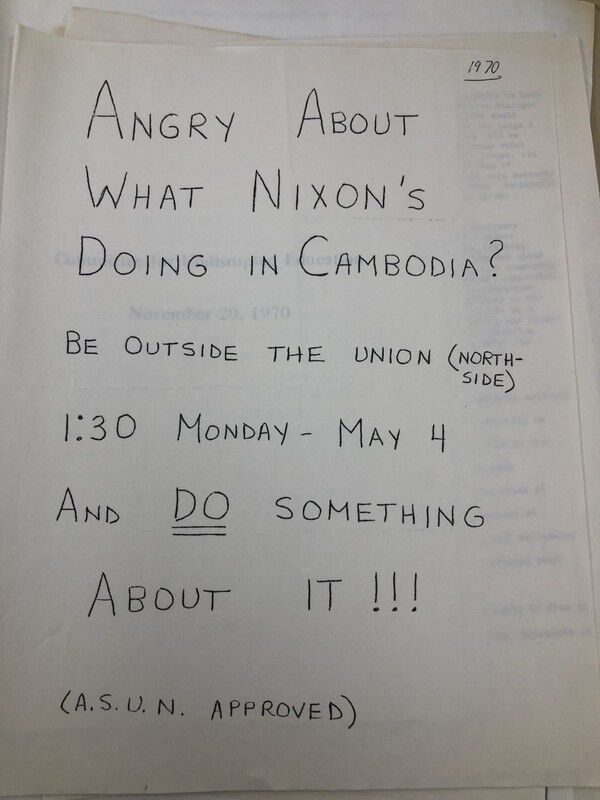 1970
ANGRY ABOUT
WHAT NIXON'S
DOING IN CAMBODIA?
BE OUTSIDE THE UNION (NORTH-
SIDE)
1:30 MONDAY - MAY 4
AND DO SOMETHING
ABOUT IT !!!
(A.S.U.N. APPROVED)
November 20, 1970